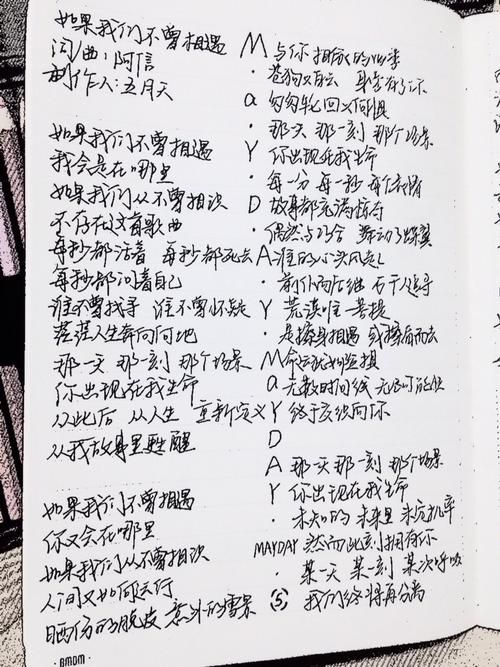 如果我们不曾相遇
词/曲:阿信
制作人:五月天
如果我们不曾相遇
我会是在哪里
如果我们从不曾相识
不存在这首歌曲
每秒都活着 每秒都死去
每秒都问着自己
谁不曾找寻 谁不曾怀疑
茫茫人生奔向何地
那一天 那一刻 那个场景
你出现在我生命
从此后 从人生 重新定义
从我故事里甦醒
如果我们不曾相遇
你又会在哪里
如果我们从不曾相识
人间又如何运行
晒伤的脱皮 意外的雪景
与你相依的四季
苍狗又白云 身旁有了你
匆匆轮回又何惧
那一天 那一刻 那个场景
你出现在我生命
每一分 每一秒 每个表情
故事都充满惊奇
偶然与巧合 舞动了蝶翼
谁的心头风起
前仆而后继 万千人追寻
荒漠唯一菩提
是擦身相遇 或擦肩而去
命运犹如险棋
无数时间线 无尽可能性
终于交织向你
那一天 那一刻 那个场景
你出现在我生命
未知的 未来里 未定机率
然而此刻拥有你
某一天 某一刻 某次呼吸
我们终将再分离
M
·
a
·
Y
·
D
·
A
·
Y
·
M
a
Y
D
A
Y
·
MAYDAY
·
5
·BMDM·